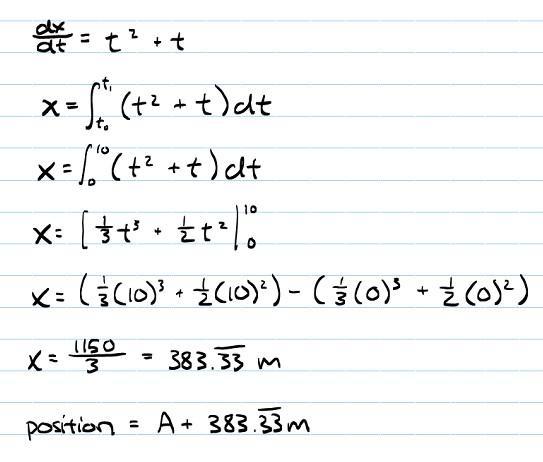 dx/dt = t² + t
x = ∫_{t₀}^{t₁} (t² + t) dt
x = ∫_{0}^{10} (t² + t) dt
x = [ 1/3 t³ + 1/2 t² |_{0}^{10}
x = (1/3 (10)³ + 1/2 (10)²) - (1/3 (0)³ + 1/2 (0)²)
x = 1150/3 = 383.3̅3̅ m
position = A + 383.3̅3̅ m